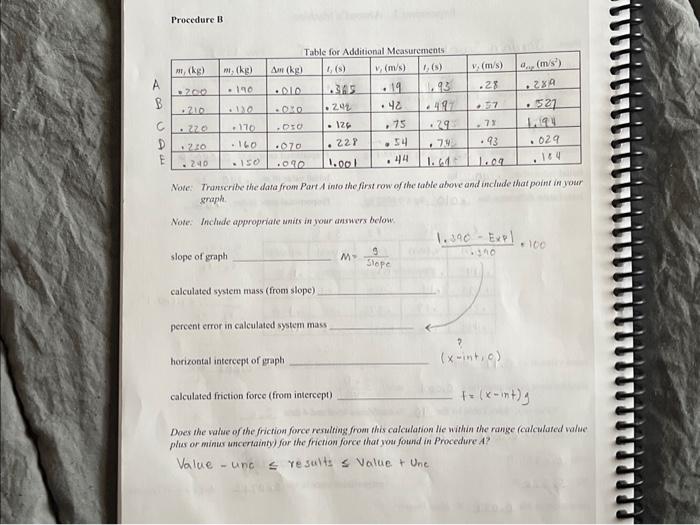 Procedure B
Table for Additional Measurements
m₁ (kg) m₂ (kg) Δm (kg) t₁ (s) v₁ (m/s) t₂ (s) v₂ (m/s) a_exp (m/s²)
A .200 .190 .010 .365 .19 1.93 .28 .289
B .210 .030 .242 .42 .497 .57 .527
C .220 .170 .050 .126 .75 .29 .78 1.194
D .160 .070 .228 .54 .74 .93 .029
E .240 .150 .090 1.001 .44 1.09
Note: Transcribe the data from Part A into the first row of the table above and include that point in your
graph.
Note: Include appropriate units in your answers below.
slope of graph M= g / Slope |.390 - Exp| / .390 • 100
calculated system mass (from slope)
percent error in calculated system mass
?
horizontal intercept of graph (x-int, 0)
calculated friction force (from intercept) f = (x-int)g
Does the value of the friction force resulting from this calculation lie within the range (calculated value
plus or minus uncertainty) for the friction force that you found in Procedure A?
Value - unc ≤ results ≤ Value + Unc